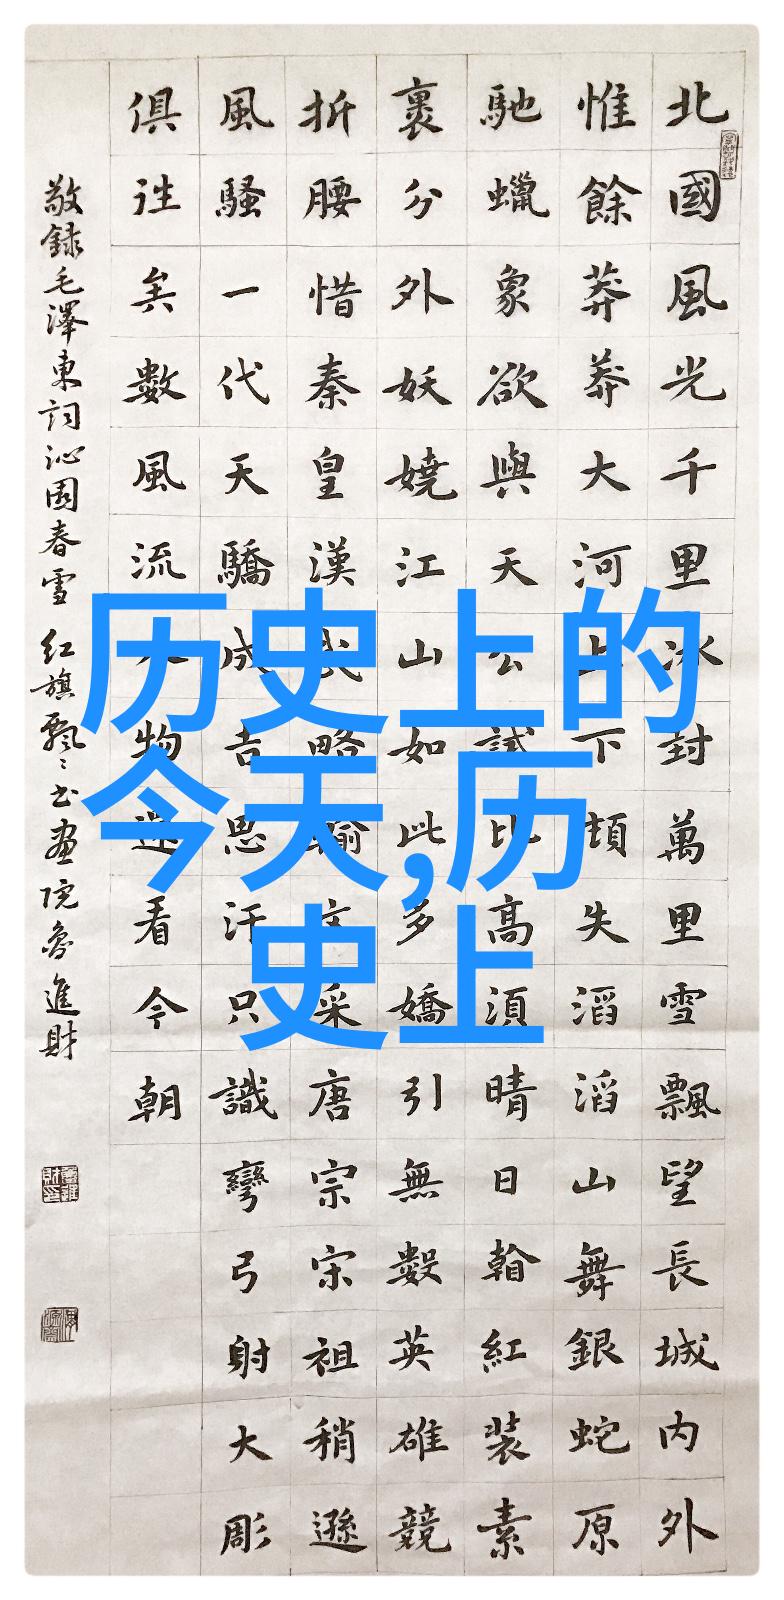 北國風光千里冰封萬里雪飄望長城内外
惟餘莽莽大河上下頓失滔滔山舞銀蛇原
馳蠟象欲與天公試比高須晴日翰紅裝素
裹分外妖嬈江山如此多嬌引無數英雄競
折腰惜秦皇漢武略輸文采唐宗宋祖稍遜
風騷一代天驕成吉思汗只識彎弓射大彫
俱往矣數風流人物還看今朝
敬録毛澤東詞沁園春雪 红旗飄〻书畫院魯進財
历史上的
今天,历
史上